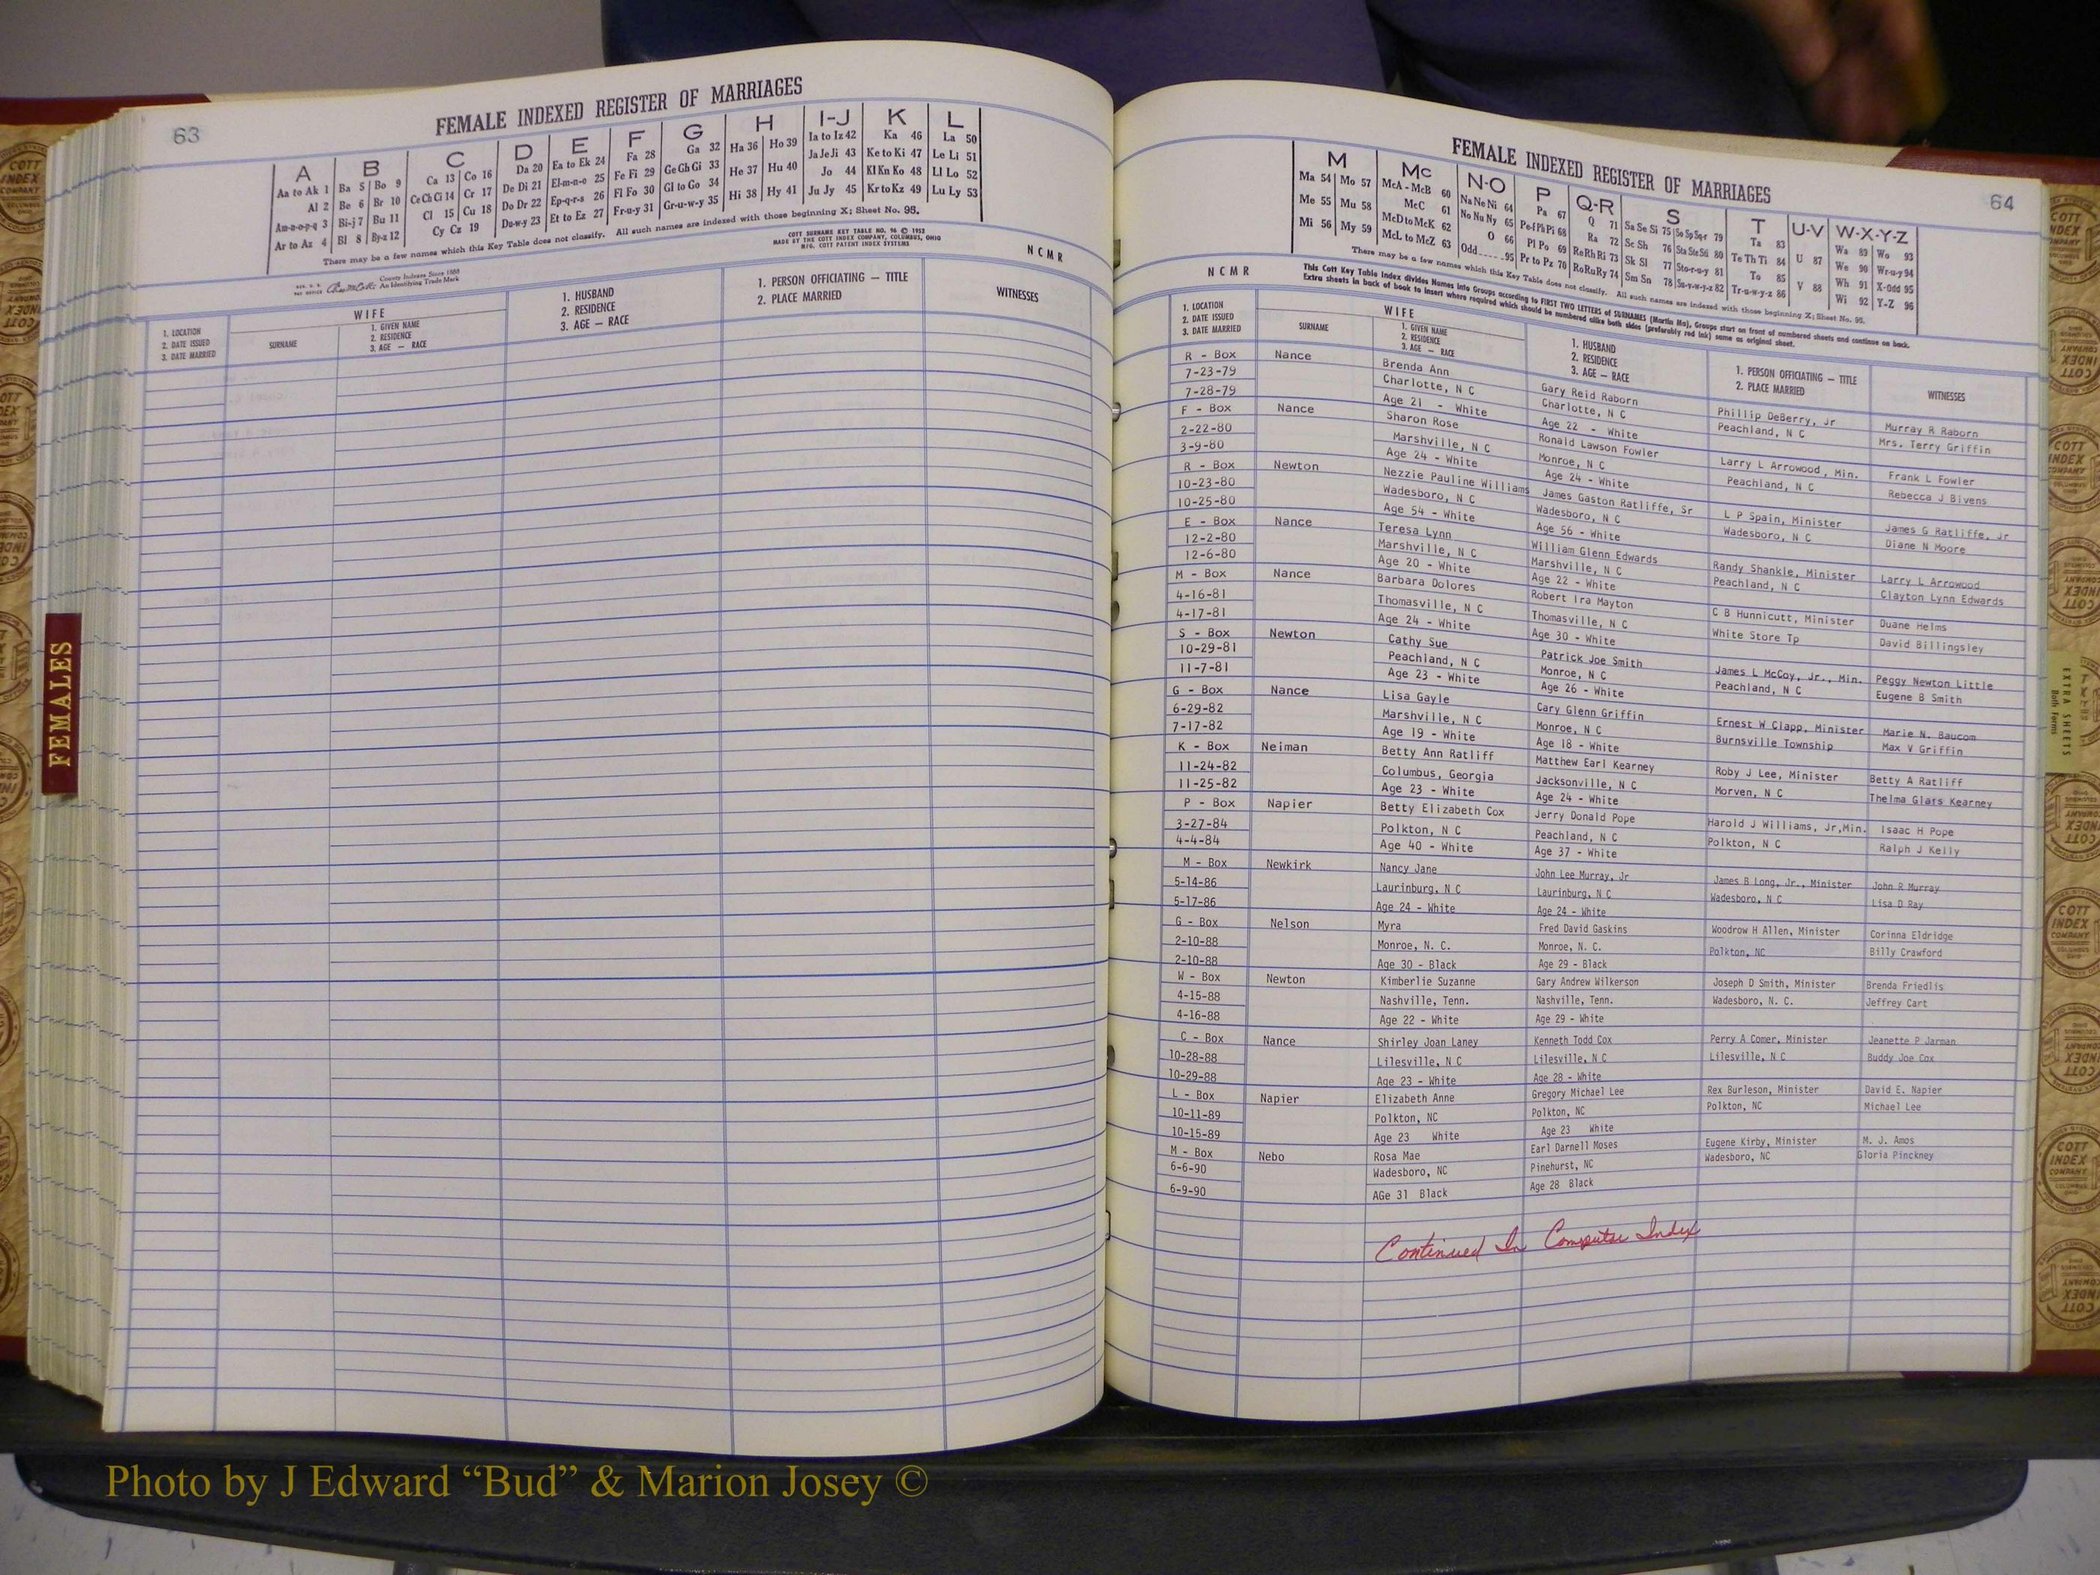 63
FEMALE INDEXED REGISTER OF MARRIAGES
A B C D E F G H I-J K L
Aa to Ak 1 Ba 5 Bo 9 Ca 13 Co 16 Da 20 Ea to Ek 24 Fa 28 Ga 32 Ha 36 Ho 39 Ia to Iz 42 Ka 46 La 50
Al 2 Be 6 Br 10 Ce Ch Ci 14 Cr 17 De Di 21 El-m-n-o 25 Fe Fi 29 Ge Gh Gi 33 He 37 Hu 40 Ja Je Ji 43 Ke to Ki 47 Le Li 51
Am-n-o-p-q 3 Bi-j 7 Bu 11 Cl 15 Cu 18 Do Dr 22 Ep-q-r-s 26 Fl Fo 30 Gl to Go 34 Hi 38 Hy 41 Jo 44 Kl Kn Ko 48 Ll Lo 52
Ar to Az 4 Bl 8 By-z 12 Cy Cz 19 Du-w-y 23 Et to Ez 27 Fr-u-y 31 Gr-u-w-y 35 Ju Jy 45 Kr to Kz 49 Lu Ly 53
There may be a few names which this Key Table does not classify. All such names are indexed with those beginning X; Sheet No. 95.
COTT SURNAME KEY TABLE NO. 96 © 1952
MADE BY THE COTT INDEX COMPANY, COLUMBUS, OHIO
MFG. COTT PATENT INDEX SYSTEMS
N C M R
County Indexes Since 1888
An Identifying Trade Mark
1. LOCATION
2. DATE ISSUED
3. DATE MARRIED
WIFE
SURNAME
1. GIVEN NAME
2. RESIDENCE
3. AGE — RACE
1. HUSBAND
2. RESIDENCE
3. AGE — RACE
1. PERSON OFFICIATING — TITLE
2. PLACE MARRIED
WITNESSES
FEMALES
FEMALE INDEXED REGISTER OF MARRIAGES
64
M Mc N-O P Q-R S T U-V W-X-Y-Z
Ma 54 Mo 57 McA - McB 60 Na Ne Ni 64 Pa 67 Q 71 Sa Se Si 75 So Sp Sq-r 79 Ta 83 U 87 Wa 89 Wo 93
Me 55 Mu 58 McC 61 No Nu Ny 65 Pe-f Ph Pi 68 Ra 72 Sc Sh 76 Sta Ste Sti 80 Te Th Ti 84 V 88 We 90 Wr-u-y 94
Mi 56 My 59 McD to McK 62 O 66 Pl Po 69 Re Rh Ri 73 Sk Sl 77 Sto-r-u-y 81 To 85 Wh 91 X-Odd 95
McL to McZ 63 Odd 95 Pr to Pz 70 Ro Ru Ry 74 Sm Sn 78 Su-v-w-y-z 82 Tr-u-w-y-z 86 Wi 92 Y-Z 96
There may be a few names which this Key Table does not classify. All such names are indexed with those beginning X; Sheet No. 95.
N C M R
This Cott Key Table Index divides Names into Groups according to FIRST TWO LETTERS of SURNAMES (Martin Ma), Groups start on front of numbered sheets and continue on back.
Extra sheets in back of book to insert where required which should be numbered alike both sides (preferably red ink) same as original sheet.
1. LOCATION
2. DATE ISSUED
3. DATE MARRIED
WIFE
SURNAME
1. GIVEN NAME
2. RESIDENCE
3. AGE — RACE
1. HUSBAND
2. RESIDENCE
3. AGE — RACE
1. PERSON OFFICIATING — TITLE
2. PLACE MARRIED
WITNESSES
R - Box Nance Brenda Ann Gary Reid Raborn Phillip DeBerry, Jr Murray R Raborn
7-23-79 Charlotte, N C Charlotte, N C Peachland, N C Mrs. Terry Griffin
7-28-79 Age 21 - White Age 22 - White
F - Box Nance Sharon Rose Ronald Lawson Fowler Larry L Arrowood, Min. Frank L Fowler
2-22-80 Marshville, N C Monroe, N C Peachland, N C Rebecca J Bivens
3-9-80 Age 24 - White Age 24 - White
R - Box Newton Nezzie Pauline Williams James Gaston Ratliffe, Sr L P Spain, Minister James G Ratliffe, Jr
10-23-80 Wadesboro, N C Wadesboro, N C Wadesboro, N C Diane N Moore
10-25-80 Age 54 - White Age 56 - White
E - Box Nance Teresa Lynn William Glenn Edwards Randy Shankle, Minister Larry L Arrowood
12-2-80 Marshville, N C Marshville, N C Peachland, N C Clayton Lynn Edwards
12-6-80 Age 20 - White Age 22 - White
M - Box Nance Barbara Dolores Robert Ira Mayton C B Hunnicutt, Minister Duane Helms
4-16-81 Thomasville, N C Thomasville, N C White Store Tp David Billingsley
4-17-81 Age 24 - White Age 30 - White
S - Box Newton Cathy Sue Patrick Joe Smith James L McCoy, Jr., Min. Peggy Newton Little
10-29-81 Peachland, N C Monroe, N C Peachland, N C Eugene B Smith
11-7-81 Age 23 - White Age 26 - White
G - Box Nance Lisa Gayle Cary Glenn Griffin Ernest W Clapp, Minister Marie N. Baucom
6-29-82 Marshville, N C Monroe, N C Burnsville Township Max V Griffin
7-17-82 Age 19 - White Age 18 - White
K - Box Neiman Betty Ann Ratliff Matthew Earl Kearney Roby J Lee, Minister Betty A Ratliff
11-24-82 Columbus, Georgia Jacksonville, N C Morven, N C Thelma Glars Kearney
11-25-82 Age 23 - White Age 24 - White
P - Box Napier Betty Elizabeth Cox Jerry Donald Pope Harold J Williams, Jr,Min. Isaac H Pope
3-27-84 Polkton, N C Peachland, N C Polkton, N C Ralph J Kelly
4-4-84 Age 40 - White Age 37 - White
M - Box Newkirk Nancy Jane John Lee Murray, Jr James B Long, Jr., Minister John R Murray
5-14-86 Laurinburg, N C Laurinburg, N C Wadesboro, N C Lisa D Ray
5-17-86 Age 24 - White Age 24 - White
G - Box Nelson Myra Fred David Gaskins Woodrow H Allen, Minister Corinna Eldridge
2-10-88 Monroe, N. C. Monroe, N. C. Polkton, NC Billy Crawford
2-10-88 Age 30 - Black Age 29 - Black
W - Box Newton Kimberlie Suzanne Gary Andrew Wilkerson Joseph D Smith, Minister Brenda Friedlis
4-15-88 Nashville, Tenn. Nashville, Tenn. Wadesboro, N. C. Jeffrey Cart
4-16-88 Age 22 - White Age 29 - White
C - Box Nance Shirley Joan Laney Kenneth Todd Cox Perry A Comer, Minister Jeanette P Jarman
10-28-88 Lilesville, N C Lilesville, N C Lilesville, N C Buddy Joe Cox
10-29-88 Age 23 - White Age 28 - White
L - Box Napier Elizabeth Anne Gregory Michael Lee Rex Burleson, Minister David E. Napier
10-11-89 Polkton, NC Polkton, NC Polkton, NC Michael Lee
10-15-89 Age 23 White Age 23 White
M - Box Nebo Rosa Mae Earl Darnell Moses Eugene Kirby, Minister M. J. Amos
6-6-90 Wadesboro, NC Pinehurst, NC Wadesboro, NC Gloria Pinckney
6-9-90 AGe 31 Black Age 28 Black
Continued In Computer Index
EXTRA SHEETS
Both Forms
Photo by J Edward “Bud” & Marion Josey ©